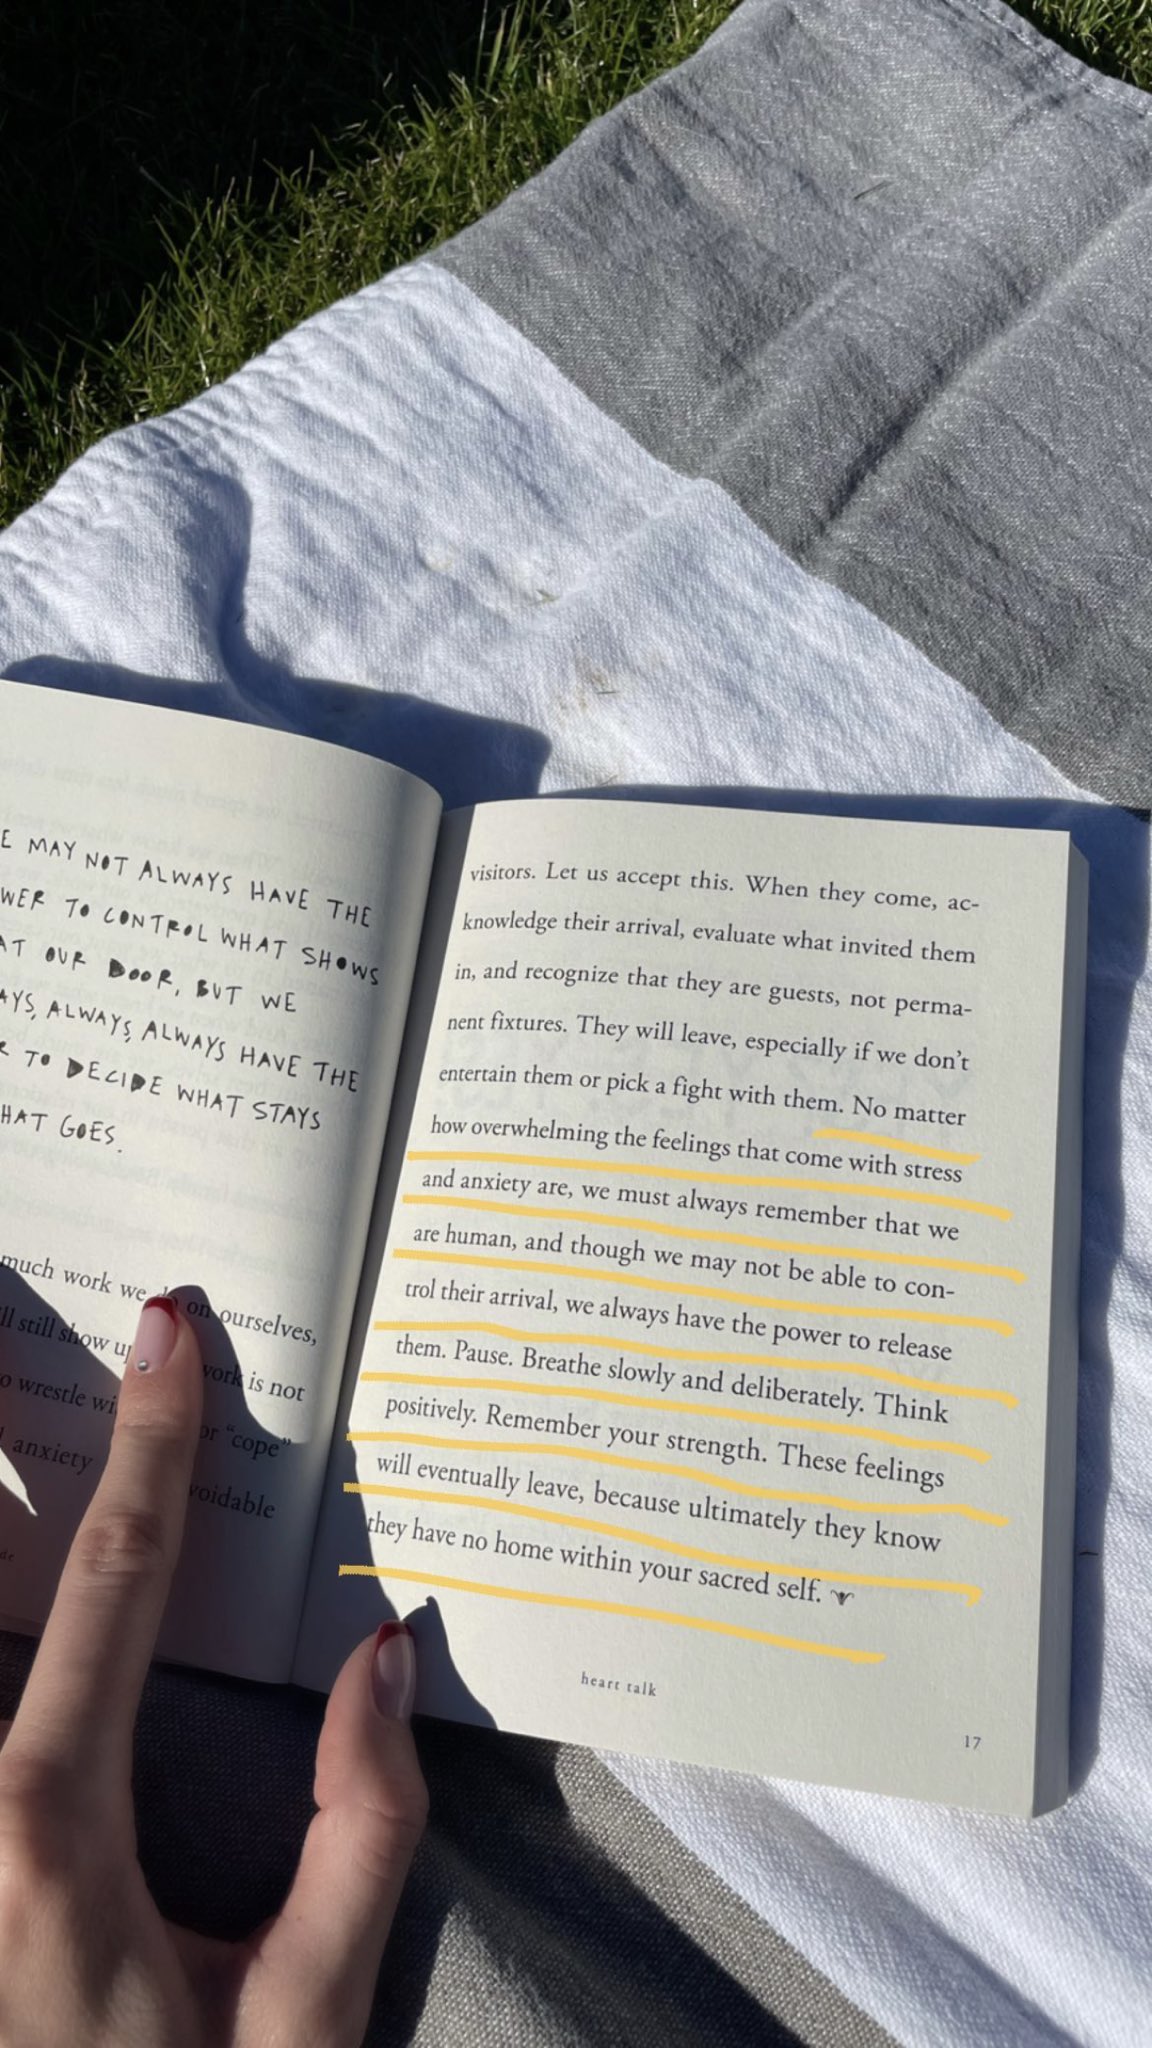 MAY NOT ALWAYS HAVE THE
TO CONTROL WHAT SHOWS
OUR DOOR, BUT WE
ALWAYS, ALWAYS HAVE THE
TO DECIDE WHAT STAYS
GOES.
much work we on ourselves,
still show up work is not
wrestle or “cope”
anxiety
visitors. Let us accept this. When they come, ac-
knowledge their arrival, evaluate what invited them
in, and recognize that they are guests, not perma-
nent fixtures. They will leave, especially if we don’t
entertain them or pick a fight with them. No matter
how overwhelming the feelings that come with stress
and anxiety are, we must always remember that we
are human, and though we may not be able to con-
trol their arrival, we always have the power to release
them. Pause. Breathe slowly and deliberately. Think
positively. Remember your strength. These feelings
will eventually leave, because ultimately they know
they have no home within your sacred self.
heart talk
17